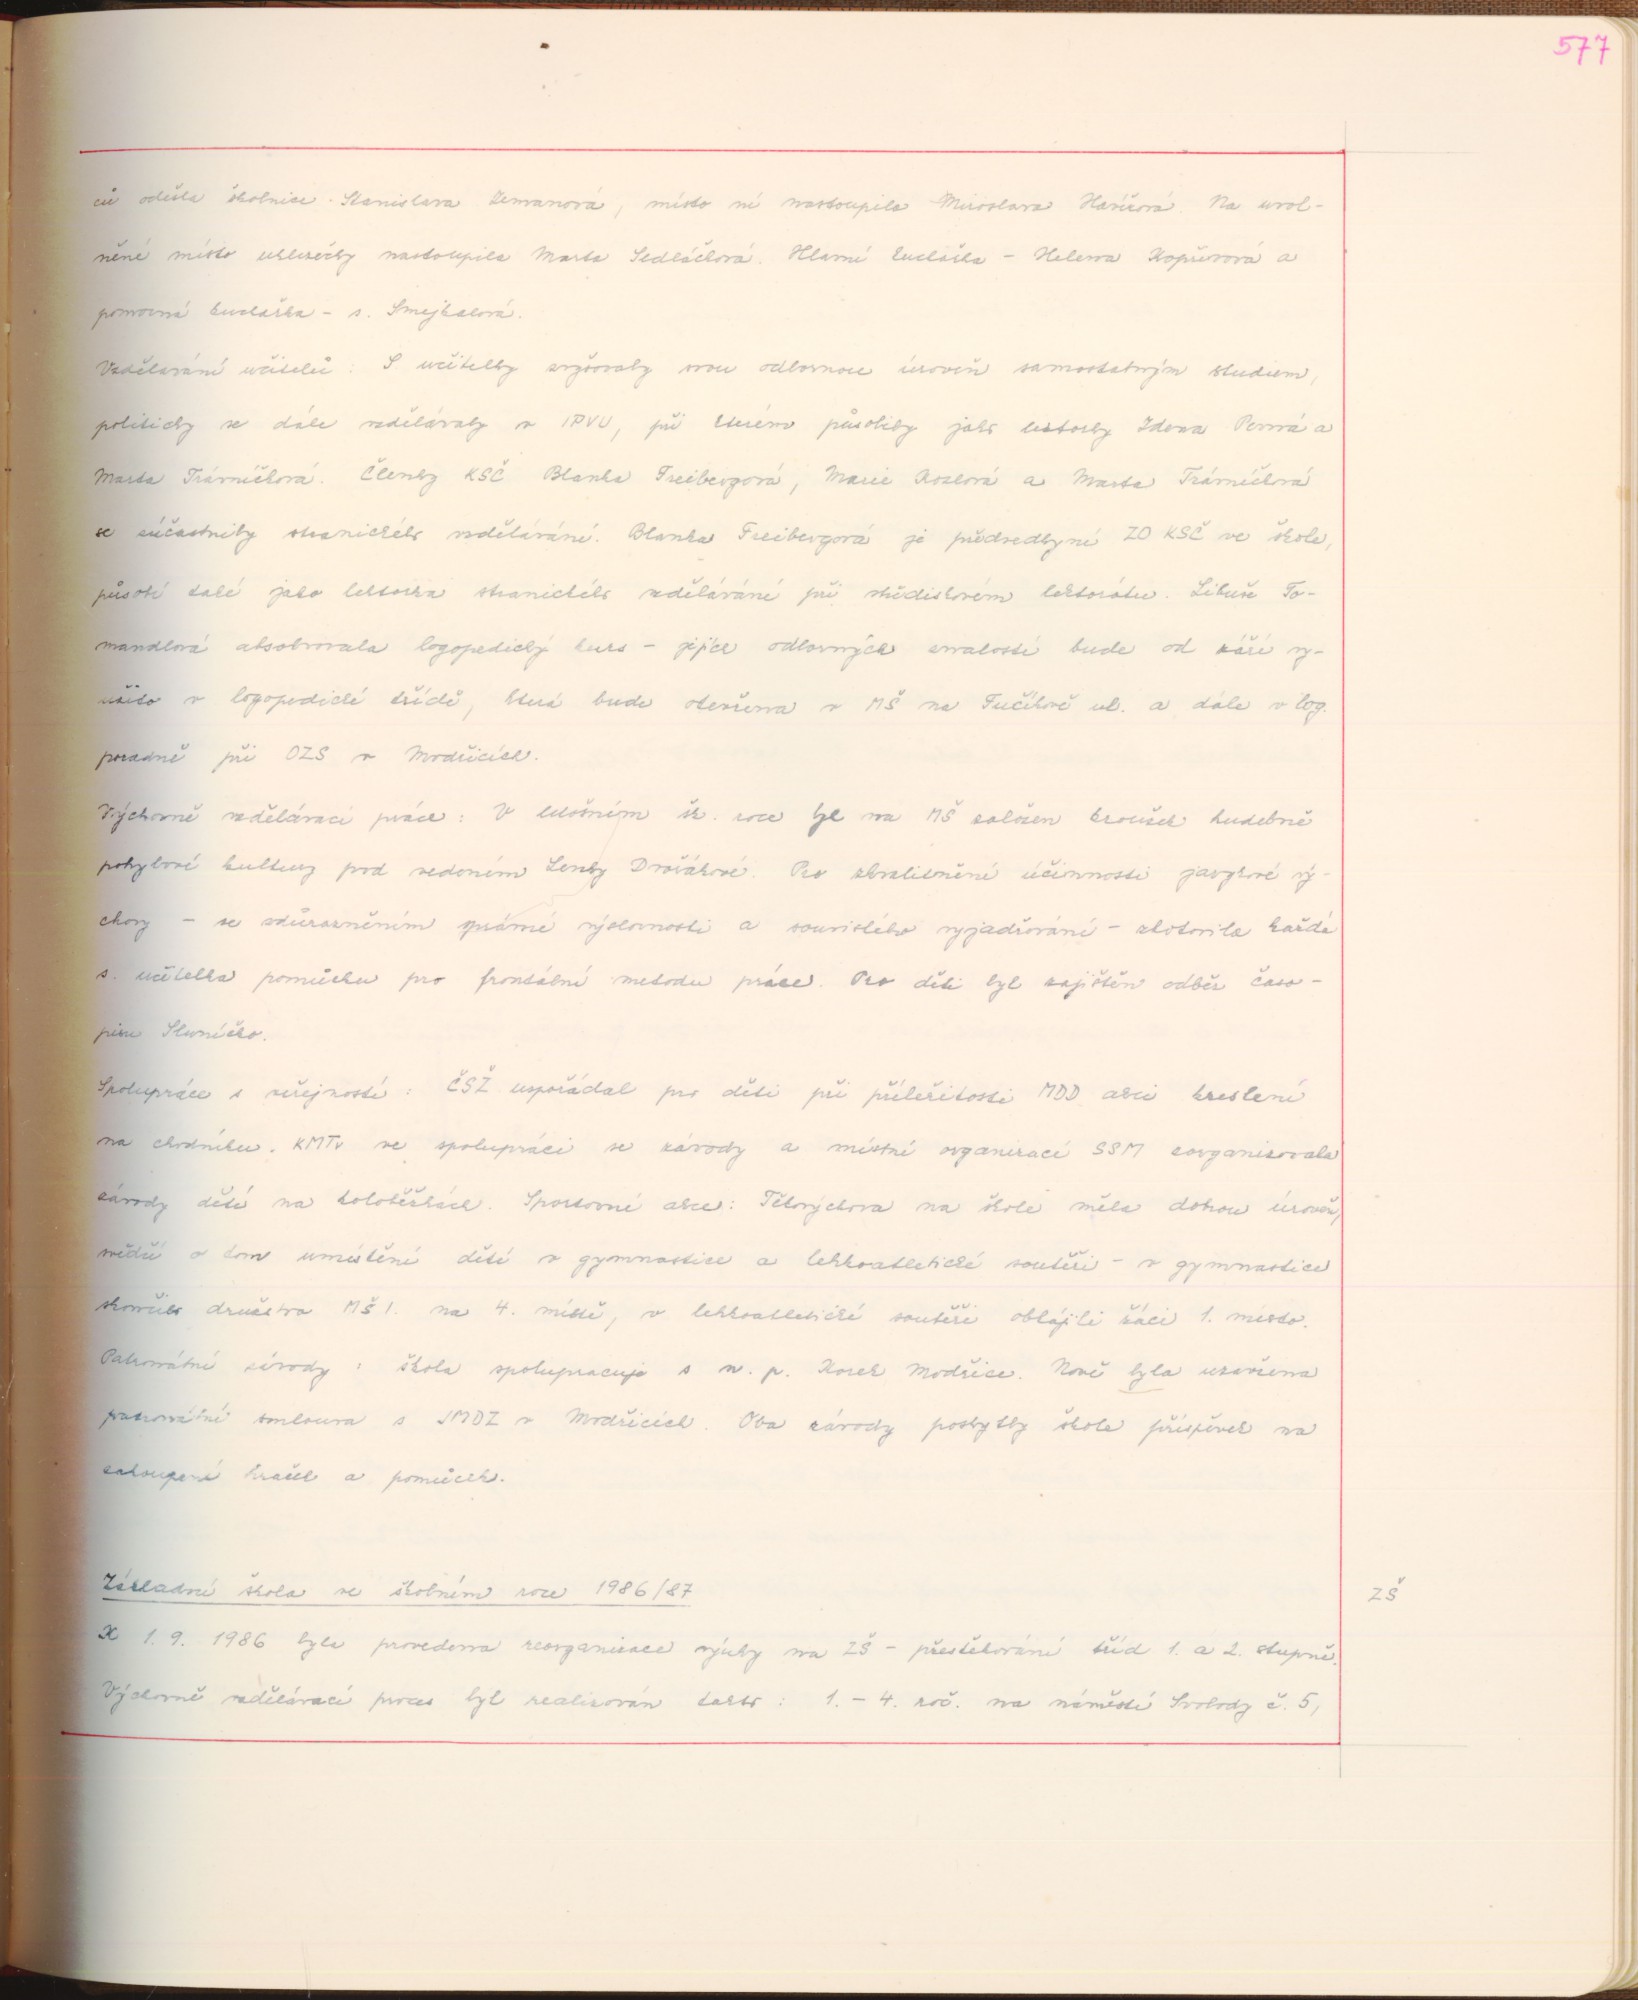 577
ců odešla školnice Stanislava Zemanová, místo ní nastoupila Miroslava Havířová. Na uvol-
něné místo uklizečky nastoupila Marta Sedláčková. Hlavní kuchařka - Helena Kopřivová a
pomocná kuchařka - s. Smejkalová.
Vzdělávání učitelů: S učitelky zvyšovaly svou odbornou úroveň samostatným studiem,
politicky se dále vzdělávaly v IPVU, při kterém působily jako lektorky Zdena Perná a
Marta Trávníčková. Členky KSČ Blanka Freibergová, Marie Kozlová a Marta Trávníčková
se súčastnily stranického vzdělávání. Blanka Freibergová je předsedkyní ZO KSČ ve škole,
působí také jako lektorka stranického vzdělávání při střediskovém lektorátu. Libuše To-
mandlová absolvovala logopedický kurs - jejích odborných znalostí bude od září vy-
užito v logopedické třídě, která bude otevřena v MŠ na Fučíkově ul. a dále v log.
poradně při OZS v Modřicích.
Výchovně vzdělávací práce: V letošním šk. roce byl na MŠ založen kroužek hudebně
pohybové kultury pod vedením Lenky Dvořákové. Pro zkvalitnění účinnosti jazykové vý-
chovy - se zdůrazněním správné výslovnosti a souvislého vyjadřování - zhotovila každá
s. učitelka pomůcku pro frontální metodu práce. Pro děti byl zajištěn odběr časo-
pisu Sluníčko.
Spolupráce s veřejností: ČSŽ uspořádal pro děti při příležitosti MDD akci kreslení
na chodníku. KMTv ve spolupráci se závody a místní organizací SSM zorganizovala
závody dětí na koloběžkách. Sportovní akce: Tělovýchova na škole měla dobrou úroveň,
svědčí o tom umístění dětí v gymnastice a lehkoatletické soutěži - v gymnastice
skončilo družstvo MŠ 1. na 4. místě, v lehkoatletické soutěži obhájili žáci 1. místo.
Patronátní závody: škola spolupracuje s n. p. Kosek Modřice. Nově byla uzavřena
patronátní smlouva s JMDZ v Modřicích. Oba závody poskytly škole příspěvek na
zakoupení hraček a pomůcek.
Základní škola ve školním roce 1986/87
ZŠ
K 1. 9. 1986 byla provedena reorganizace výuky na ZŠ - přestěhování tříd 1. a 2. stupně.
Výchovně vzdělávací proces byl realizován takto: 1. - 4. roč. na náměstí Svobody č. 5,